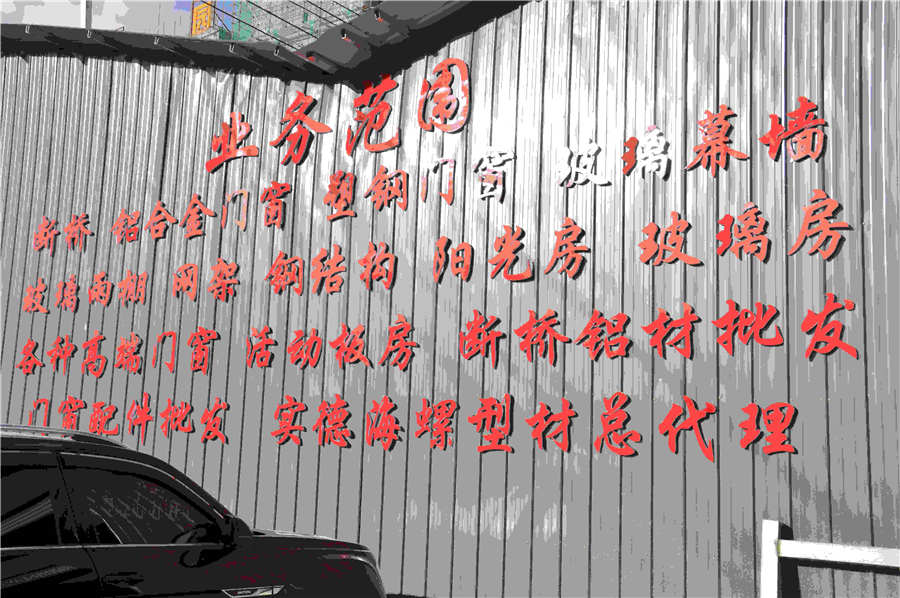 业务范围
断桥 铝合金门窗 塑钢门窗 玻璃幕墙
玻璃雨棚 网架 钢结构 阳光房 玻璃房
各种高端门窗 活动板房 断桥铝材批发
门窗配件批发 实德海螺型材总代理
园